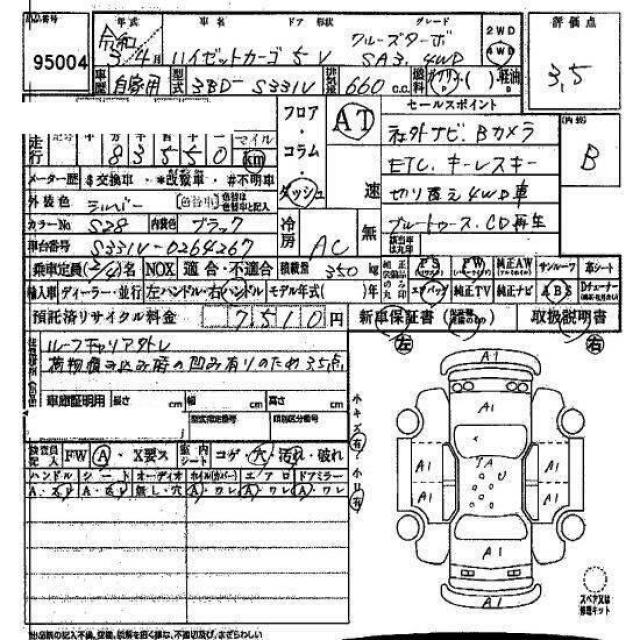 年式 車名 ドア 形状 グレード
出品番号 95004
令和 3/4月 ハイゼットカーゴ 5 V クルーズターボ SAⅢ 4WD
2WD 4WD
評価点 3.5
車歴 自家用 型式 3BD-S331V 排気量 660 c.c. 燃料 ガソリン ( ) 軽油
フロア・コラム・ダッシュ AT 速
セールスポイント
内装 B
社外ナビ、Bカメラ
ETC、キーレスキー
切り替え4WD車
ブルートゥース、CD再生
走行 83550 マイル km
メーター歴 $交換車・*改竄車・#不明車
外装色 シルバー (色替車)
カラーNo S28 内装色 ブラック
冷房 AC 無
車台番号 S331V-0264267
乗車定員(2/4)名 NOX 適合・不適合 積載量 350 kg
PS PW 純正AW サンルーフ 革シート
輸入車 ディーラー・並行 左ハンドル・右ハンドル モデル年式( )年
エアバッグ 純正TV 純正ナビ ABS Dチューナー
預託済リサイクル料金 7510円
新車保証書 取扱説明書
左 右
ルーフキャリア外し
荷物積み込み時の凹み有りのため3.5点
車庫証明用 長さ cm 幅 cm 高さ cm
型式指定番号 類別区分番号
小キズ有
小U有
検査員記入 FW A・X要ス 室内シート コゲ・穴・汚れ・破れ
ハンドル シート オーディオ ホイル(カバー) エアロ ドアミラー
A・スレ A・スレ 無し・穴 A・ワレ A・ワレ A・ワレ
A1
A1
A1 A1
A1 A1
A U
A1
A1
スペア又は修理キット